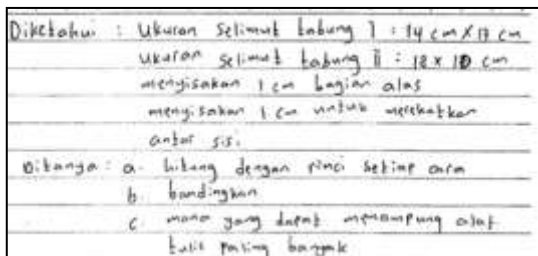 Diketahui : Ukuran Selimut tabung I : 14 cm X 17 cm
Ukuran Selimut tabung II : 18 x 10 cm
menyisakan 1 cm bagian alas
menyisakan 1 cm untuk merekatkan
antar sisi
Ditanya : a. hitung dengan rinci setiap cara
b. bandingkan
c. mana yang dapat menampung alat
tulis paling banyak